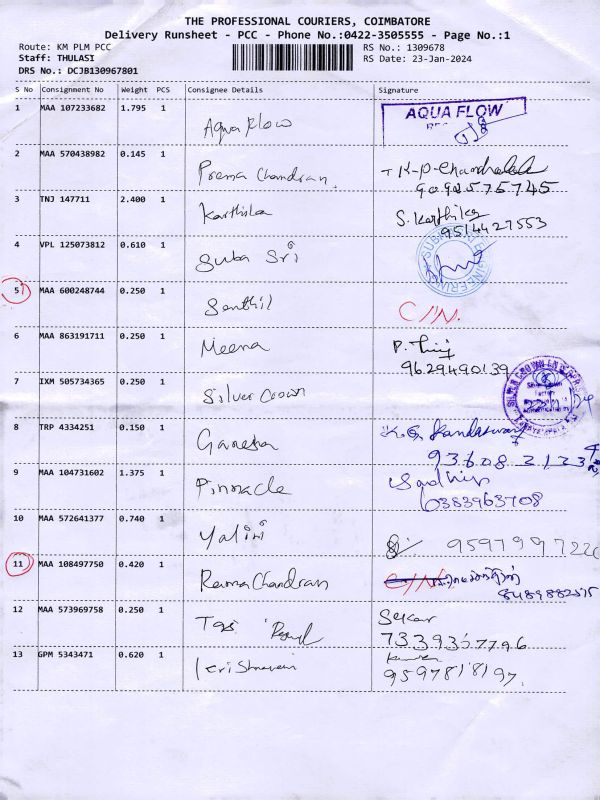 THE PROFESSIONAL COURIERS, COIMBATORE
Delivery Runsheet - PCC - Phone No.:0422-3505555 - Page No.:1
Route: KM PLM PCC RS No.: 1309678
Staff: THULASI RS Date: 23-Jan-2024
DRS No.: DCJB130967801
S No Consignment No Weight PCS Consignee Details Signature
1 MAA 107233682 1.795 1 Aqua Flow AQUA FLOW
2 MAA 570438982 0.145 1 Prema Chandran.
3 TNJ 147711 2.400 1 Karthika S. Karthika
9514427553
4 VPL 125073812 0.610 1 Suba Sri
5 MAA 600248744 0.250 1 Senthil C/N.
6 MAA 863191711 0.250 1 Meena
9629490139
7 IXM 505734365 0.250 1 Silver Crown
8 TRP 4334251 0.150 1 Ganesha
9 MAA 104731602 1.375 1 Pinnacle
10 MAA 572641377 0.740 1 Yalini
11 MAA 108497750 0.420 1 Rama Chandran C/N
12 MAA 573969758 0.250 1 Sekar
7339357796
13 GPM 5343471 0.620 1
9597818197.